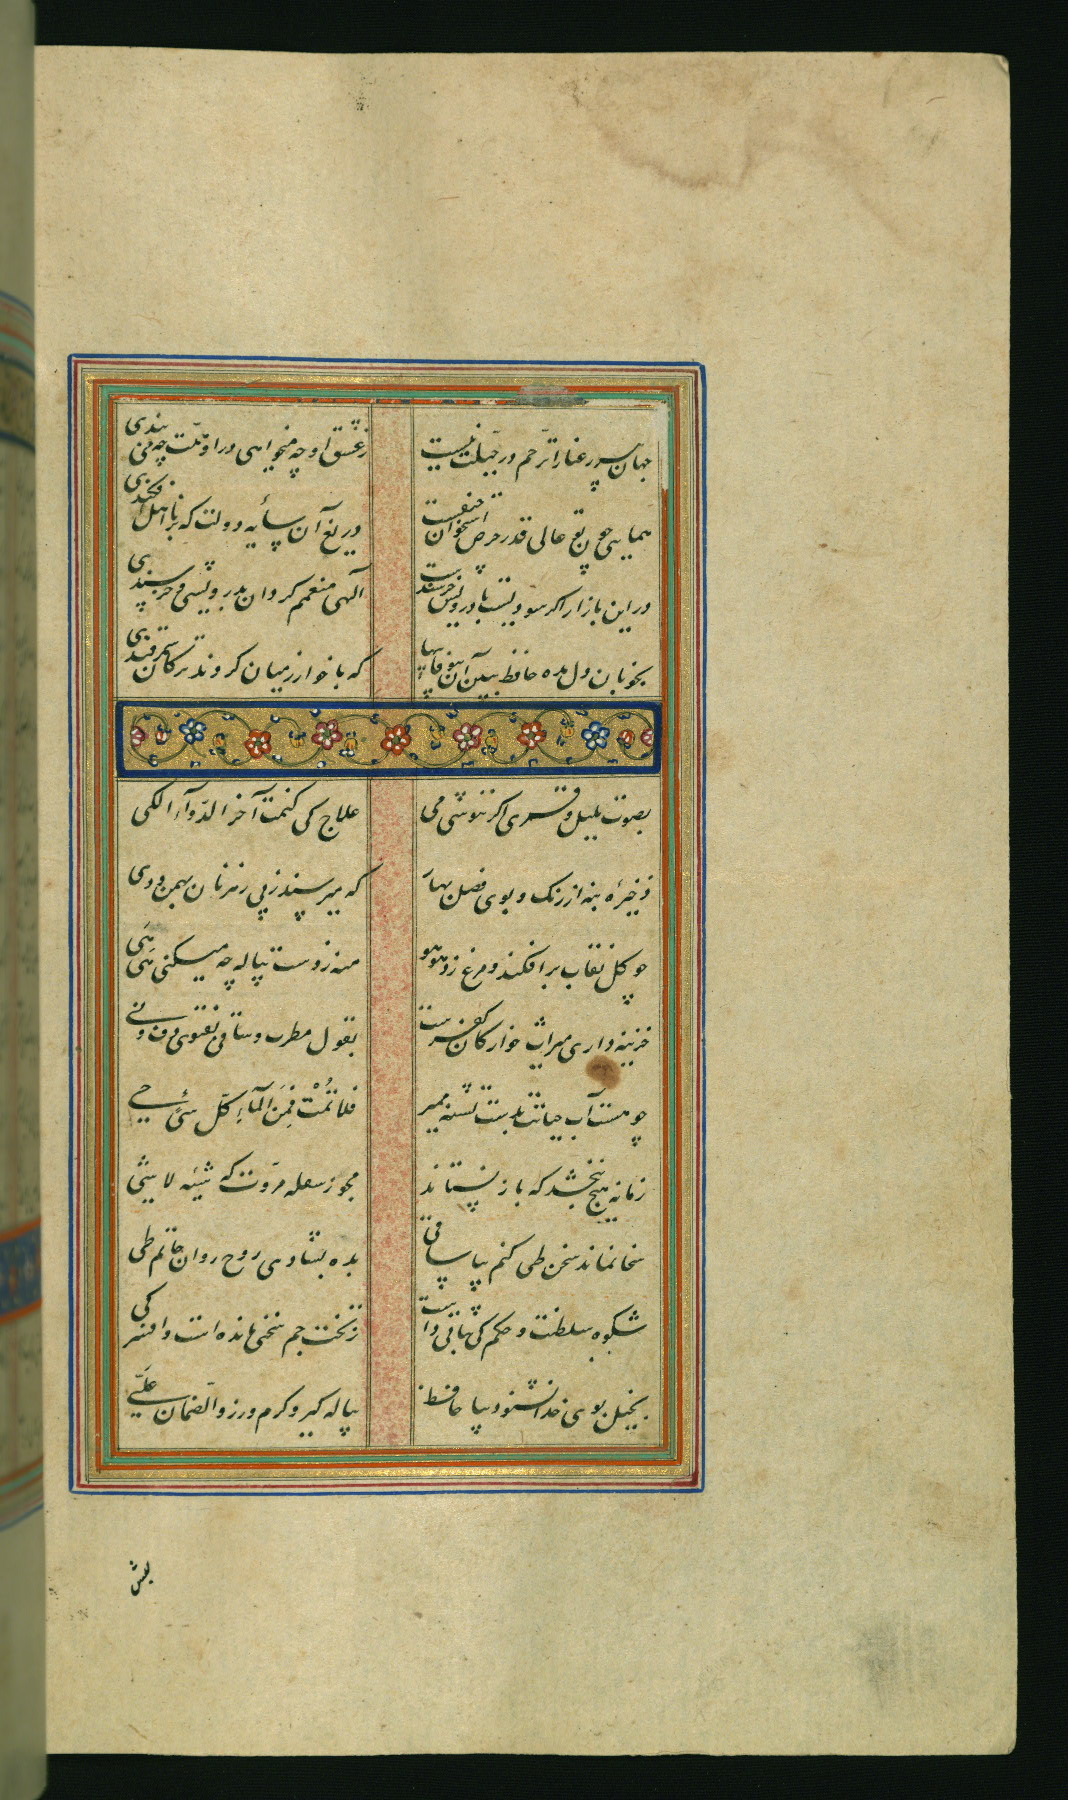 جهان پیر رعنا را ترحم در جبلت نیست
ز عشق او چه میخواهی در او همت چه می بندی
همایی چون تو عالی قدر حرص استخوان حیفست
دریغ آن سایه دولت که بر نااهل افکندی
در این بازار اگر سودیست با درویش خرسندست
الهی منعمم کردان بدرویشی و خرسندی
بخوبان دل مده حافظ ببین آن بیوفایها
که با خوارزمیان کردند ترکان سمرقندی
بصوت بلبل و قمری اکر ننوشی می
علاج کی کنمت آخر الدّوآء الکی
ذخیرهٔ بنه از رنک و بوی فصل بهار
که میرسند ز پی رهزنان بهمن و دی
چو کل نقاب برافکند و مرغ زد هوهو
منه ز دست پیاله چه میکنی هَی هَی
خزینه داری میراث خوارکان کفرست
بقول مطرب و ساقی بفتوی دف و نی
چو هست آب حیاتت بدست تشنه ممیر
فلا تمُتْ فمِنَ المآءِ کلّ شئٍ حی
زمانه هیچ نبخشد که باز نستاند
مجو ز سفله مروّت که شیئه لا شئی
سخا نماند سخن طی کنم بیا ساقی
بده بشادی روح روان حاتم طی
شکوه سلطنت و حکم کی ثباتی داشت
ز تخت جم سخنی مانده است و افسر کی
بخیل بوی خدا نشنود بیا حافظ
پیاله کیر و کرم ورز و الضّمان علَیّ